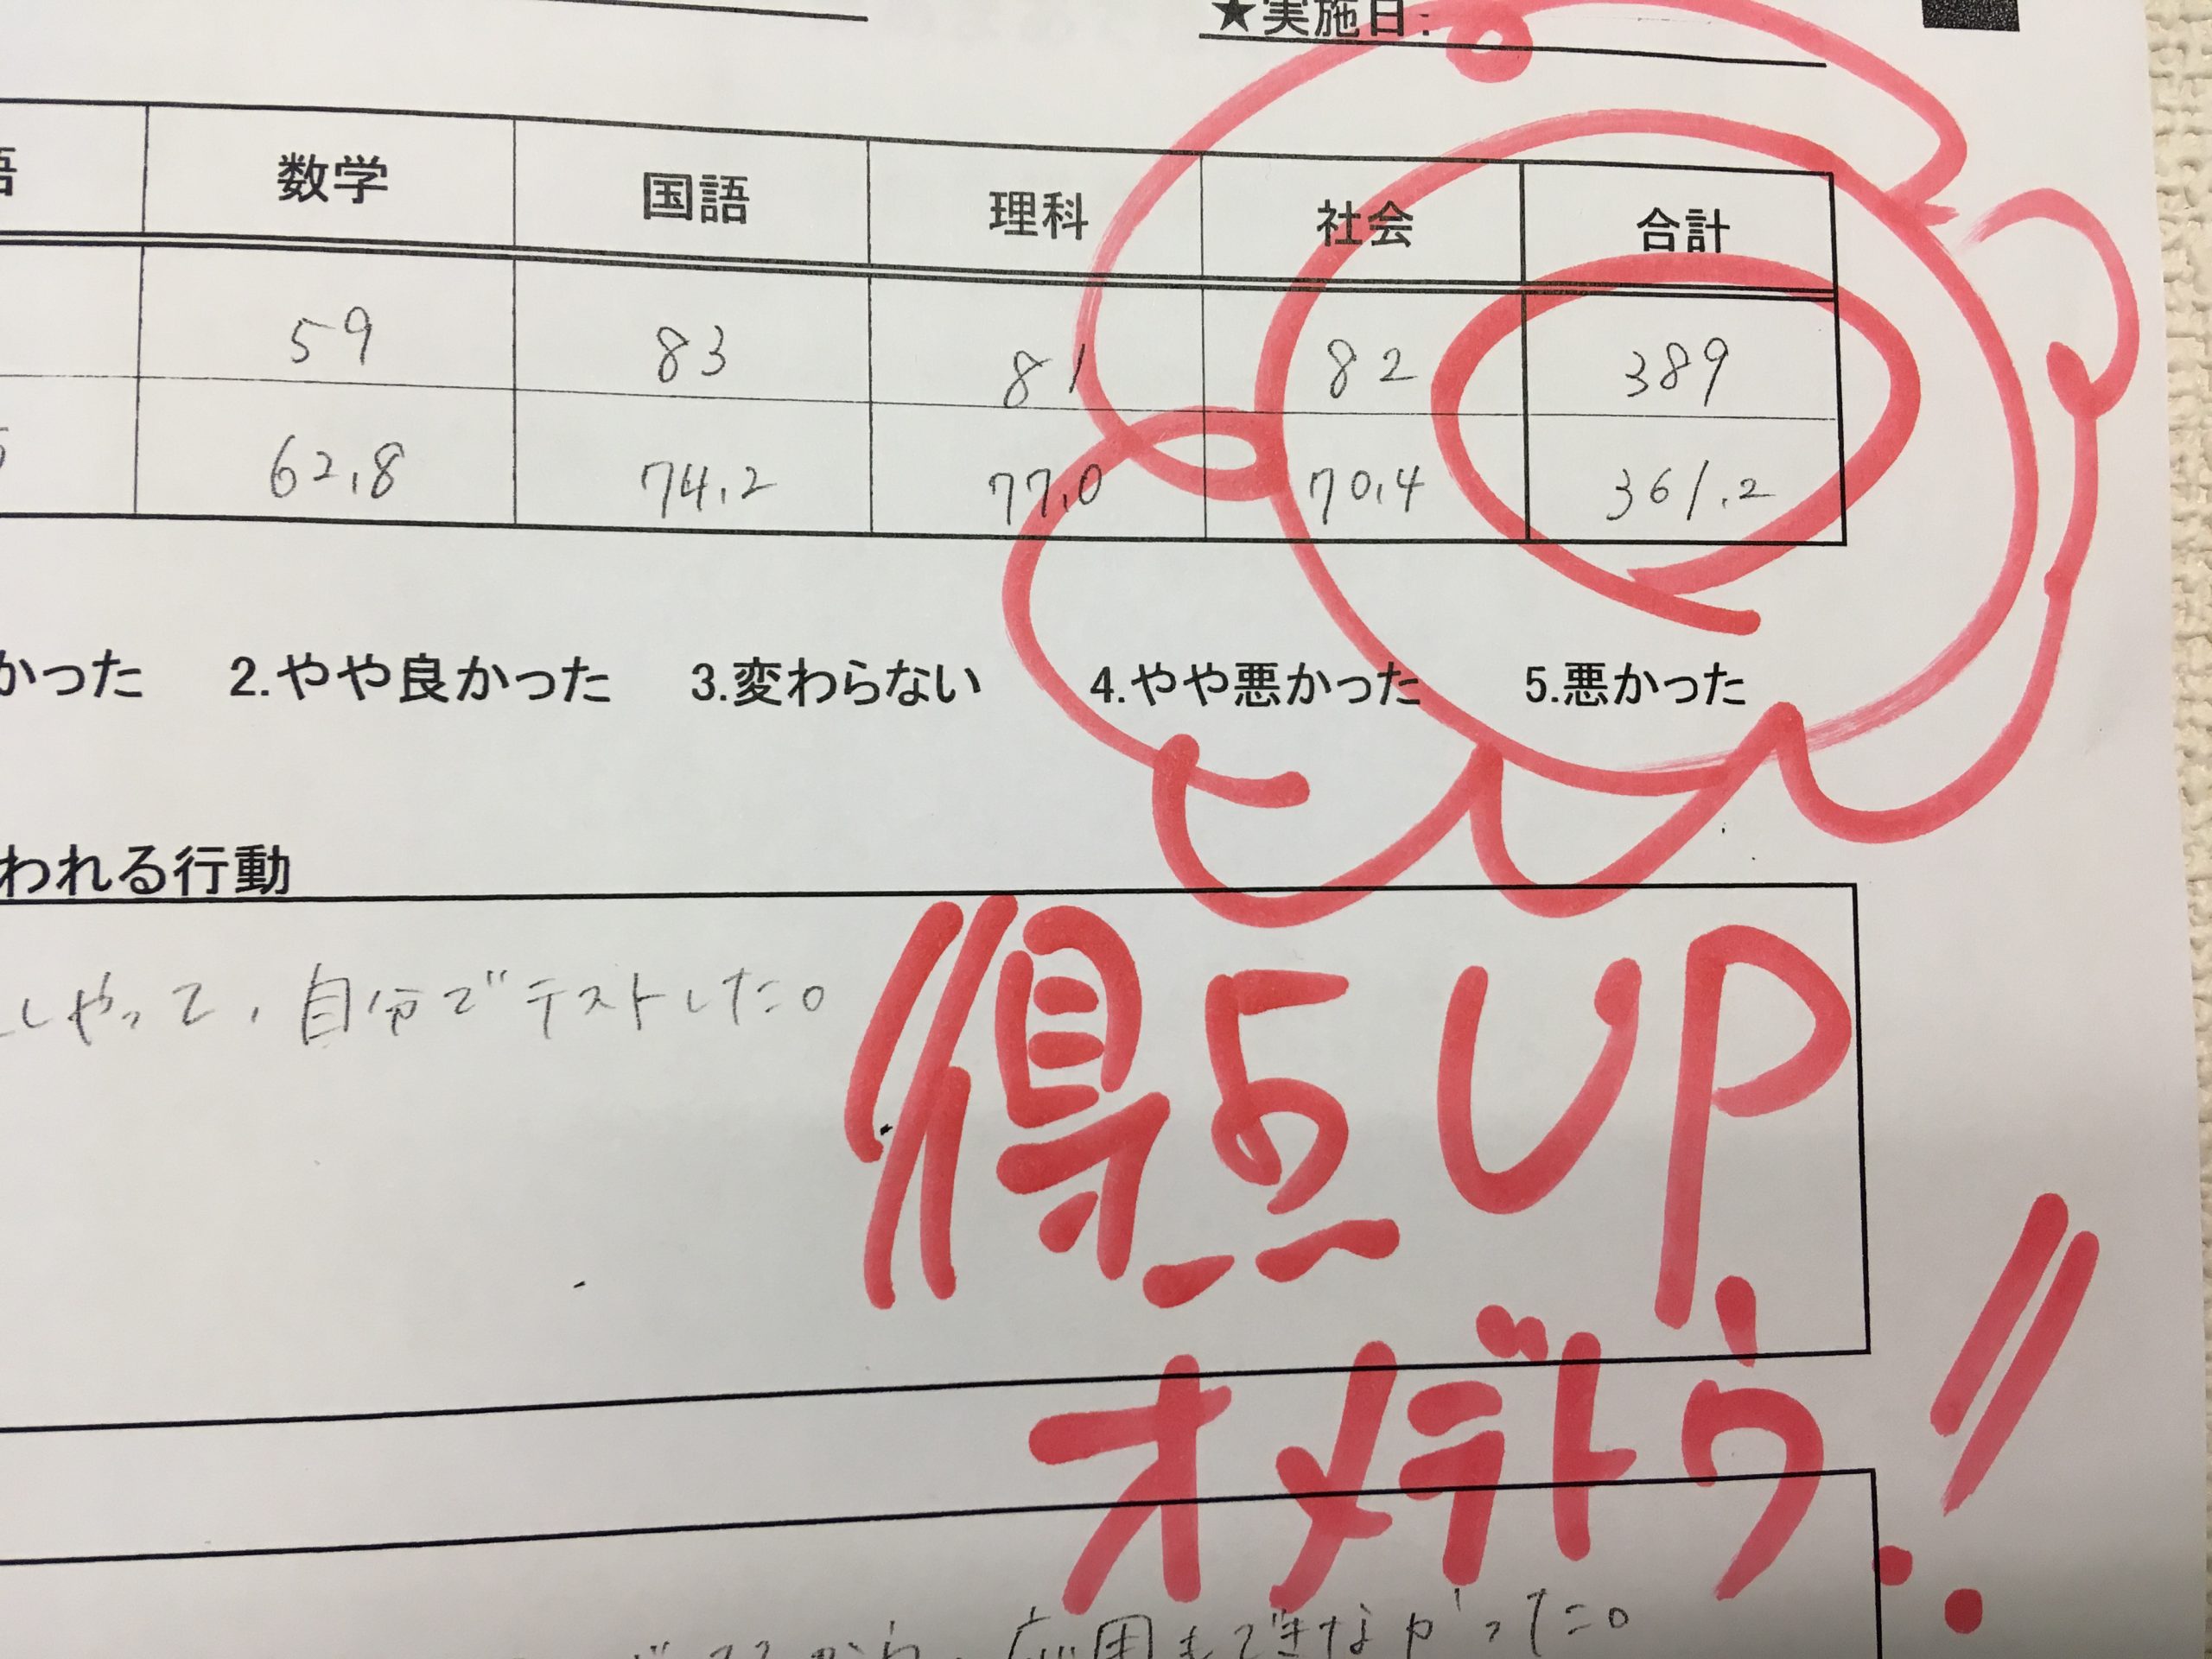 ★実施日:
語 数学 国語 理科 社会 合計
59 83 81 82 389
62.8 74.2 77.0 70.4 361.2
かった 2.やや良かった 3.変わらない 4.やや悪かった 5.悪かった
われる行動
しやって、自分でテストした。
得点UP
オメデトウ!!
から、応用もできなかった。